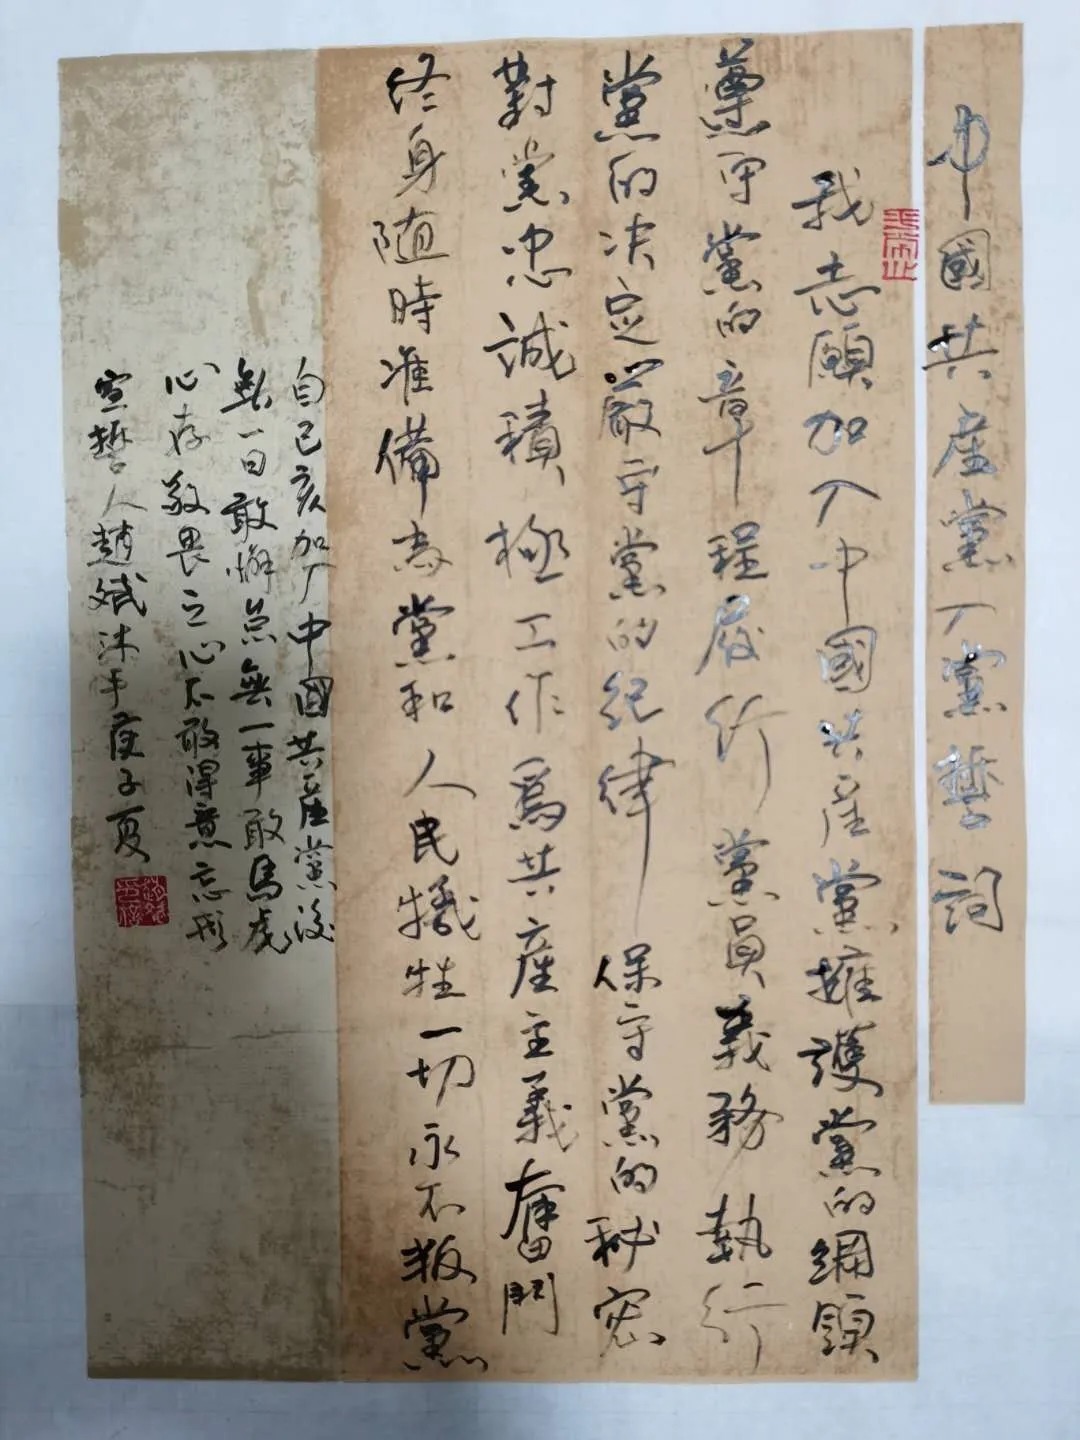 中國共産黨入黨誓詞
我志願加入中國共産黨擁護黨的綱領
遵守黨的章程履行黨員義務執行
黨的決定嚴守黨的紀律保守黨的秘密
對黨忠誠積極工作爲共産主義奮鬥
終身随時准備為黨和人民犧牲一切永不叛黨
自己亥加入中國共産黨後
無一日敢懈怠無一事敢馬虎
心存敬畏之心不敢得意忘形
宣誓人趙斌沐手庚子夏